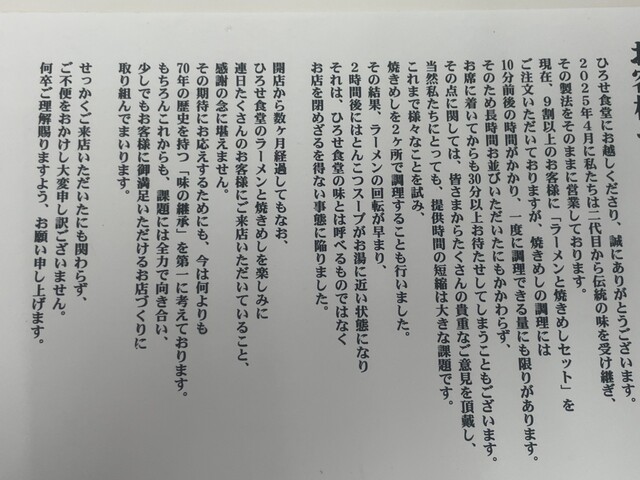 ひろせ食堂にお越しくださり、誠にありがとうございます。
2025年4月に私たちは二代目から伝統の味を受け継ぎ、
その製法をそのままに営業しております。
現在、9割以上のお客様に「ラーメンと焼きめしセット」を
ご注文いただいておりますが、焼きめしの調理には
10分前後の時間がかかり、一度に調理できる量にも限りがあります。
そのため長時間お並びいただいたにもかかわらず、
お席に着いてからも30分以上お待たせしてしまうこともございます。
その点に関しては、皆さまからたくさんの貴重なご意見を頂戴し、
当然私たちにとっても、提供時間の短縮は大きな課題です。
これまで様々なことを試み、
焼きめしを2ヶ所で調理することも行いました。
その結果、ラーメンの回転が早まり、
2時間後にはとんこつスープがお湯に近い状態になり
それは、ひろせ食堂の味とは呼べるものではなく
お店を閉めざるを得ない事態に陥りました。
開店から数ヶ月経過してもなお、
ひろせ食堂のラーメンと焼きめしを楽しみに
連日たくさんのお客様にご来店いただいていること、
感謝の念に堪えません。
その期待にお応えするためにも、今は何よりも
70年の歴史を持つ「味の継承」を第一に考えております。
もちろんこれからも、課題には全力で向き合い、
少しでもお客様に御満足いただけるお店づくりに
取り組んでまいります。
せっかくご来店いただいたにも関わらず、
ご不便をおかけし大変申し訳ございません。
何卒ご理解賜りますよう、お願い申し上げます。